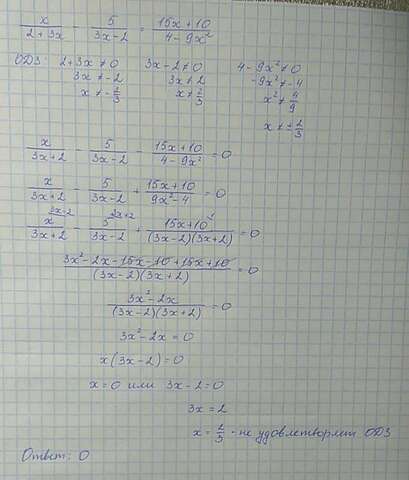 x/(2+3x) - 5/(3x-2) = (15x+10)/(4-9x²)
ОДЗ: 2+3x≠0 3x-2≠0 4-9x²≠0
3x≠-2 3x≠2 -9x²≠-4
x≠-2/3 x≠2/3 x²≠4/9
x≠±2/3
x/(3x+2) - 5/(3x-2) - (15x+10)/(4-9x²) = 0
x/(3x+2) - 5/(3x-2) + (15x+10)/(9x²-4) = 0
x^(3x-2)/(3x+2) - 5^(3x+2)/(3x-2) + (15x+10)^1/((3x-2)(3x+2)) = 0
(3x²-2x-15x-10+15x+10)/((3x-2)(3x+2)) = 0
(3x²-2x)/((3x-2)(3x+2)) = 0
3x²-2x=0
x(3x-2)=0
x=0 или 3x-2=0
3x=2
x=2/3 - не удовлетворяет ОДЗ
Ответ: 0